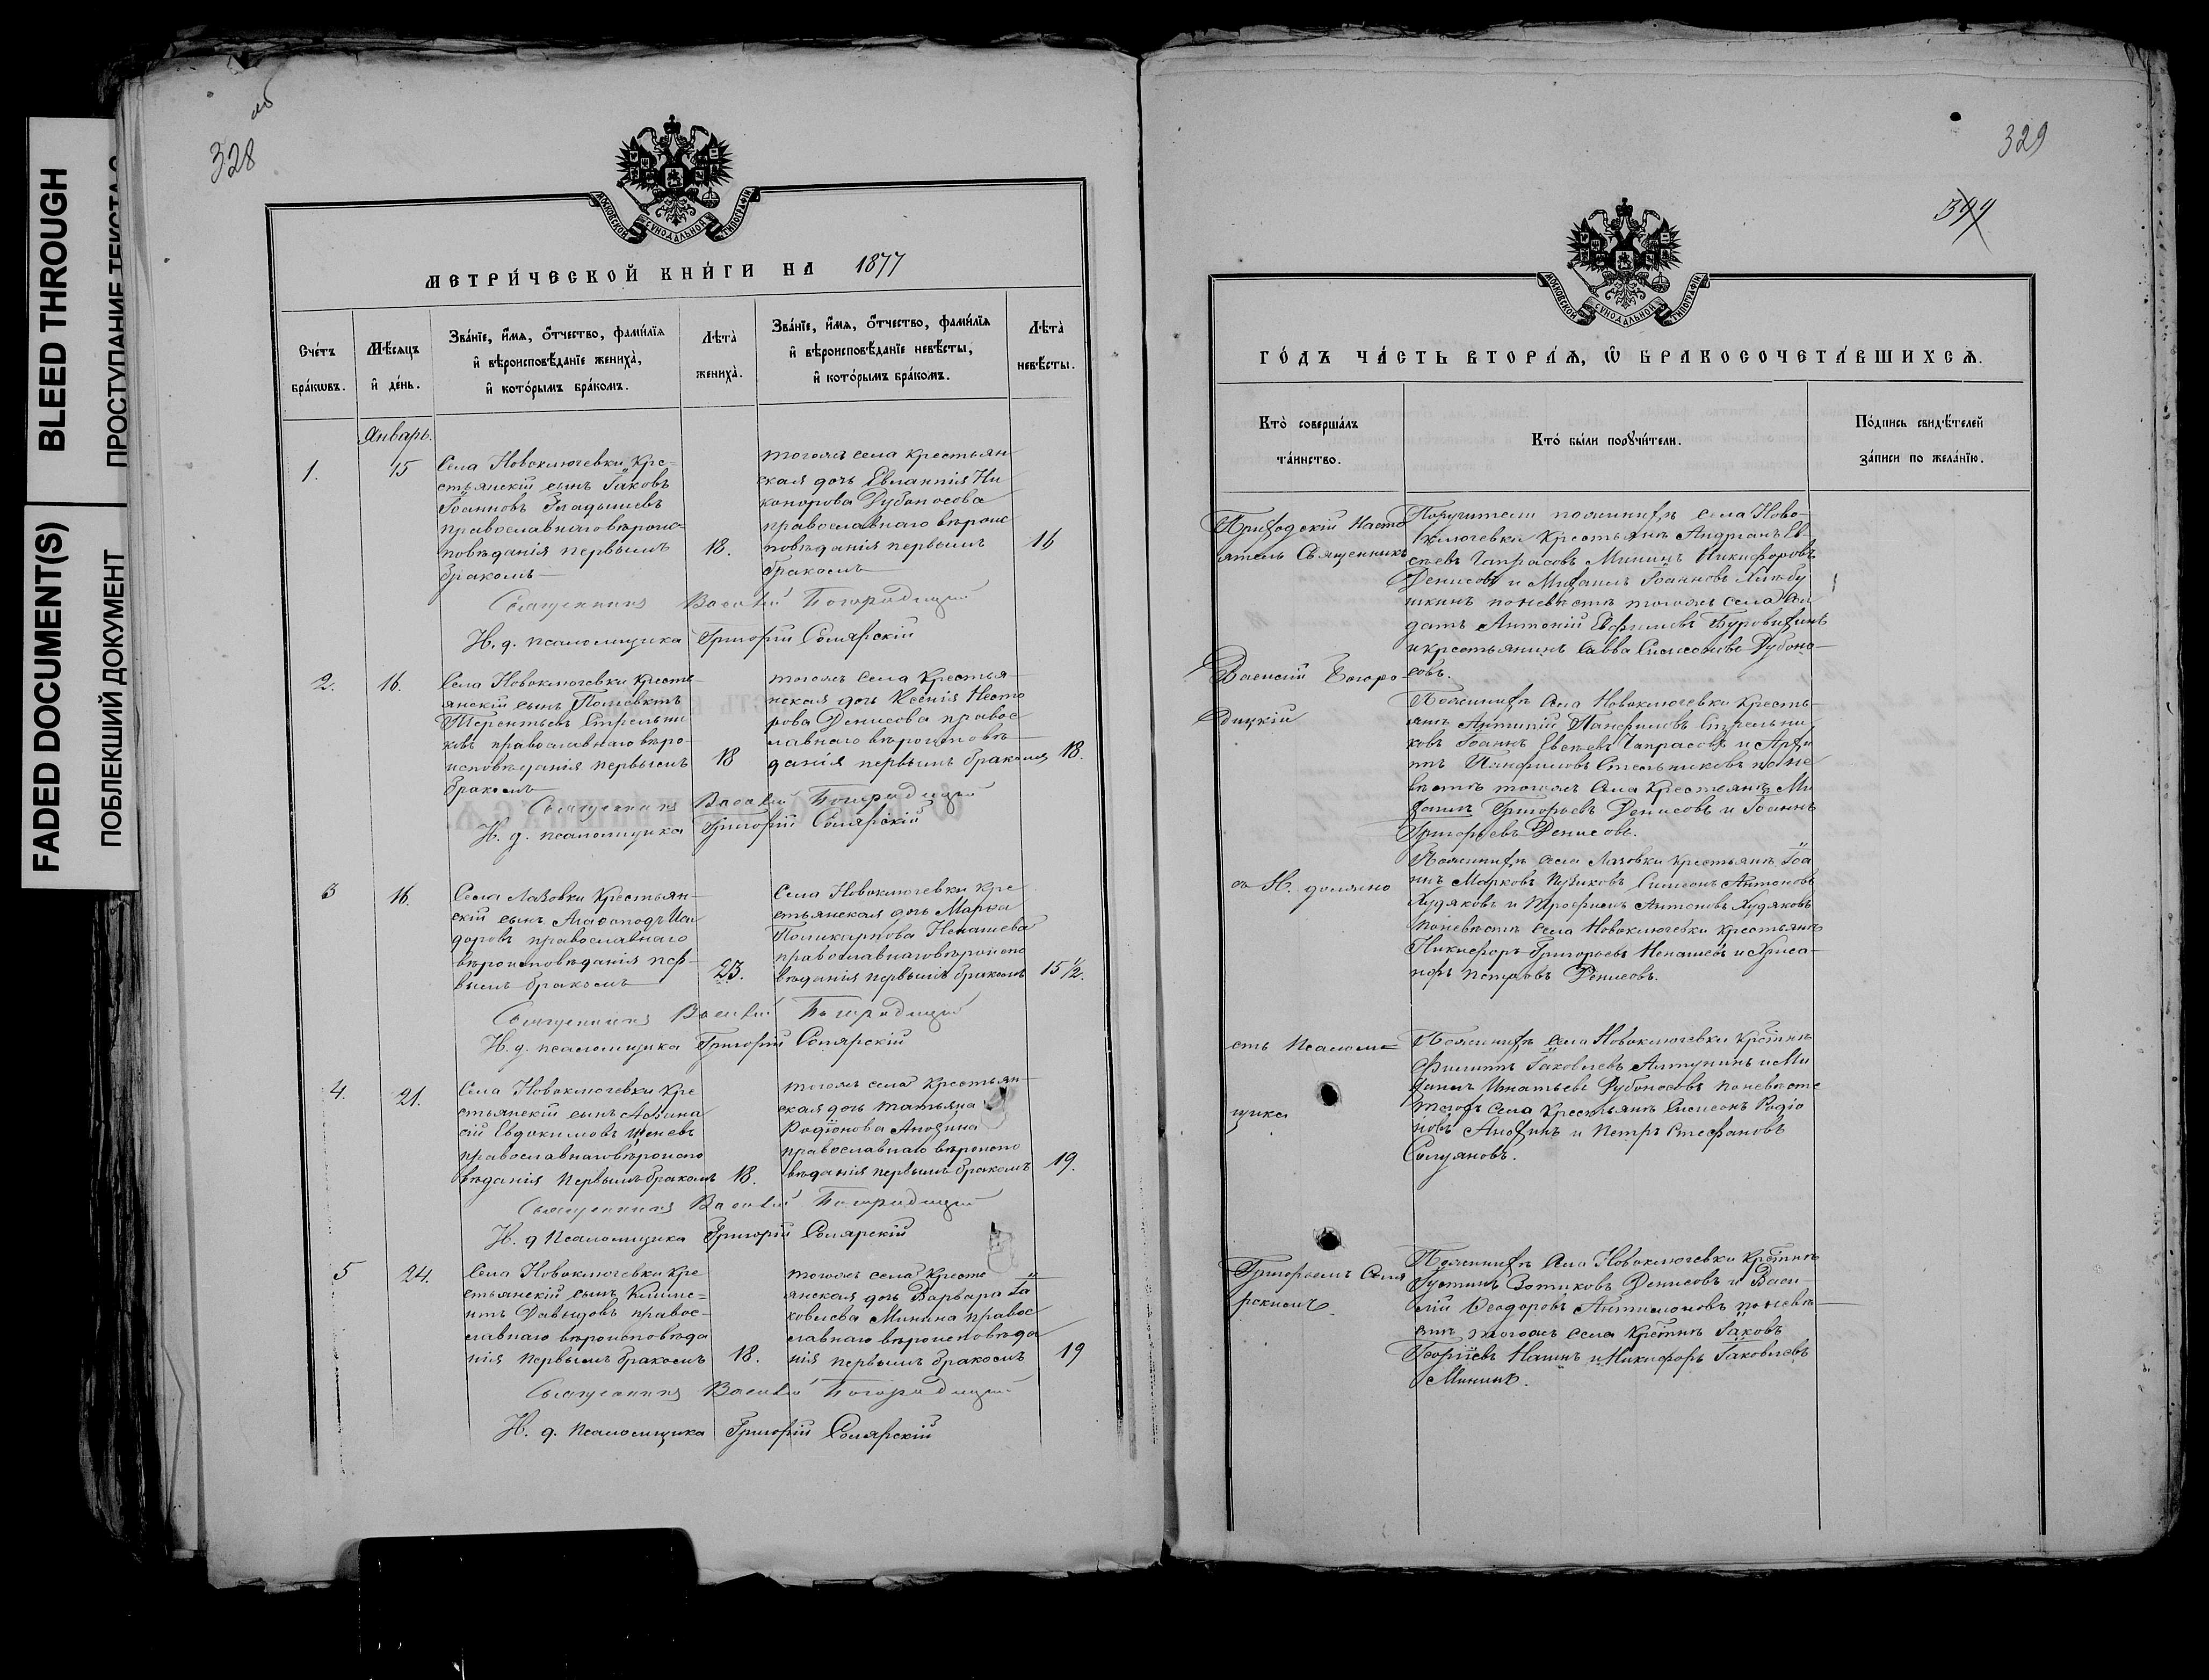 BLEED THROUGH
FADED DOCUMENT(S)
ПОБЛЕКШИЙ ДОКУМЕНТ
328
об
МОСКОВСКОЙ СѴНОДАЛЬНОЙ ТИПОГРАФІИ
МЕТРИ́ЧЕСКОЙ КНИ́ГИ НА 1877
Сче́тъ бра́кѡвъ.
Мѣ́сяцъ и҆ де́нь.
Зва́нїе, и҆́мя, ѻ҆́тчество, фами́лїя и҆ вѣроисповѣ́данїе жениха̀, и҆ кото́рымъ бра́комъ.
Лѣта̀ жениха̀.
Зва́нїе, и҆́мя, ѻ҆́тчество, фами́лїя и҆ вѣроисповѣ́данїе невѣ́сты, и҆ кото́рымъ бра́комъ.
Лѣта̀ невѣ́сты.
Январь.
1.
15
Села Новоключевки Кре=
стьянскій сынъ Іаковъ
Іоанновъ Гладышевъ
православнаго вѣроис=
повѣданія первымъ
бракомъ
18.
тогожъ села крестьян
ская дочь Евлампія Ни
конорова Дубоносова
православнаго вѣроис
повѣданія первымъ
бракомъ
16
Священникъ Василій Богородицкій
И. д. псаломщика Григорій Солярскій
2.
16.
Села Новоключевки кресть
янскій сынъ Полиевктъ
Терентьевъ Стрельни
ковъ православнаго вѣро
исповѣданія первымъ
бракомъ
18
тогожъ села крестья
нская дочь Ксенія Несто
рова Денисова правос
лавнаго вѣроисповѣ
данія первымъ бракомъ
18.
Священникъ Василій Богородицкій
И. д. псаломщика Григорій Солярскій
3
16.
Села Лазовки Крестьян
скій сынъ Агафоподъ Иси
доровъ православнаго
вѣроисповѣданія пер
вымъ бракомъ
23.
Села Новоключевки кре
стьянская дочь Марѳа
Поликарпова Ненашева
православнаго вѣроиспо
вѣданія первымъ бракомъ
15 1/2.
Священникъ Василій Богородицкій
И. д. псаломщика Григорій Солярскій
4.
21.
Села Новоключевки Кре
стьянскій сынъ Аѳана
сій Евдокимовъ
православнаго вѣроиспо
вѣданія первымъ бракомъ
18.
тогожъ села крестьян
ская дочь Татьяна
Родіонова Анохина
православнаго вѣроиспо
вѣданія первымъ бракомъ
19.
Священникъ Василій Богородицкій
И. д. Псаломщика Григорій Солярскій
5
24.
Села Новоключевки Кре
стьянскій сынъ Климе=
нтъ Давыдовъ правос=
лавнаго вѣроисповѣда
нія первымъ бракомъ
18.
тогожъ села кресть
янская дочь Варвара Іа
ковлева Минина правос
лавнаго вѣроисповѣда
нія первымъ бракомъ
19
Священникъ Василій Богородицкій
И. д. Псаломщика Григорій Солярскій
329
МОСКОВСКОЙ СѴНОДАЛЬНОЙ ТИПОГРАФІИ
ГО́ДЪ ЧА́СТЬ ВТОРА́Я, Ѡ҆ БРАКОСОЧЕТА́ВШИХСЯ.
Кто̀ соверша́лъ та́инство.
Кто̀ бы́ли порꙋчи́тели.
По́дпись свидѣ́телей за́писи по жела́нїю.
Приходскій Насто
ятель Священникъ
Василій Богоро
дицкій
съ И. должно
сть Псалом=
щика
Григорьемъ Соля
рскимъ.
Поручители по женихѣ села Ново
ключевки крестьянъ Андріанъ Ев
сѣевъ Чапрасовъ Мининъ Никифоровъ
Денисовъ и Михаилъ Іоанновъ
по невѣстѣ тогожъ села
Антоній Ефимовъ
и крестьянинъ Савва Симеоновъ Дубоно
совъ.
По женихѣ Села Новоключевки кресть
янъ Панфиловъ Стрельни
ковъ Іоаннъ Евсѣевъ Чапрасовъ и
Панфиловъ и по не
вѣстѣ тогожъ села Крестьянъ Ми
хаилъ Григорьевъ Денисовъ и Іоаннъ
Григорьевъ Денисовъ.
По женихѣ Села Лазовки крестьянъ Іоа
ннъ Марковъ Пузиковъ Симеонъ Антоновъ
Худяковъ и Трофимъ Антоновъ Худяковъ
по невѣстѣ Села Новоключевки крестьянъ
Никифоръ Григорьевъ Ненашевъ и Хриса
нфъ Петровъ Денисовъ.
По женихѣ Села Новоключевки крестянъ
Филиппъ Іаковлевъ и Ми
хаилъ Игнатьевъ Дубоносовъ по невѣсте
тогожъ Села Крестьянъ Симеонъ Родіо
новъ Анохинъ и Петръ Стефановъ
По женихѣ Села Новоключевки крестянъ
Іустинъ Зотиковъ Денисовъ и Васи
лій Ѳеодоровъ по невѣ
стѣ тогожъ села крестянъ Іаковъ
Георгіевъ и Никифоръ Іаковлевъ
Мининъ.